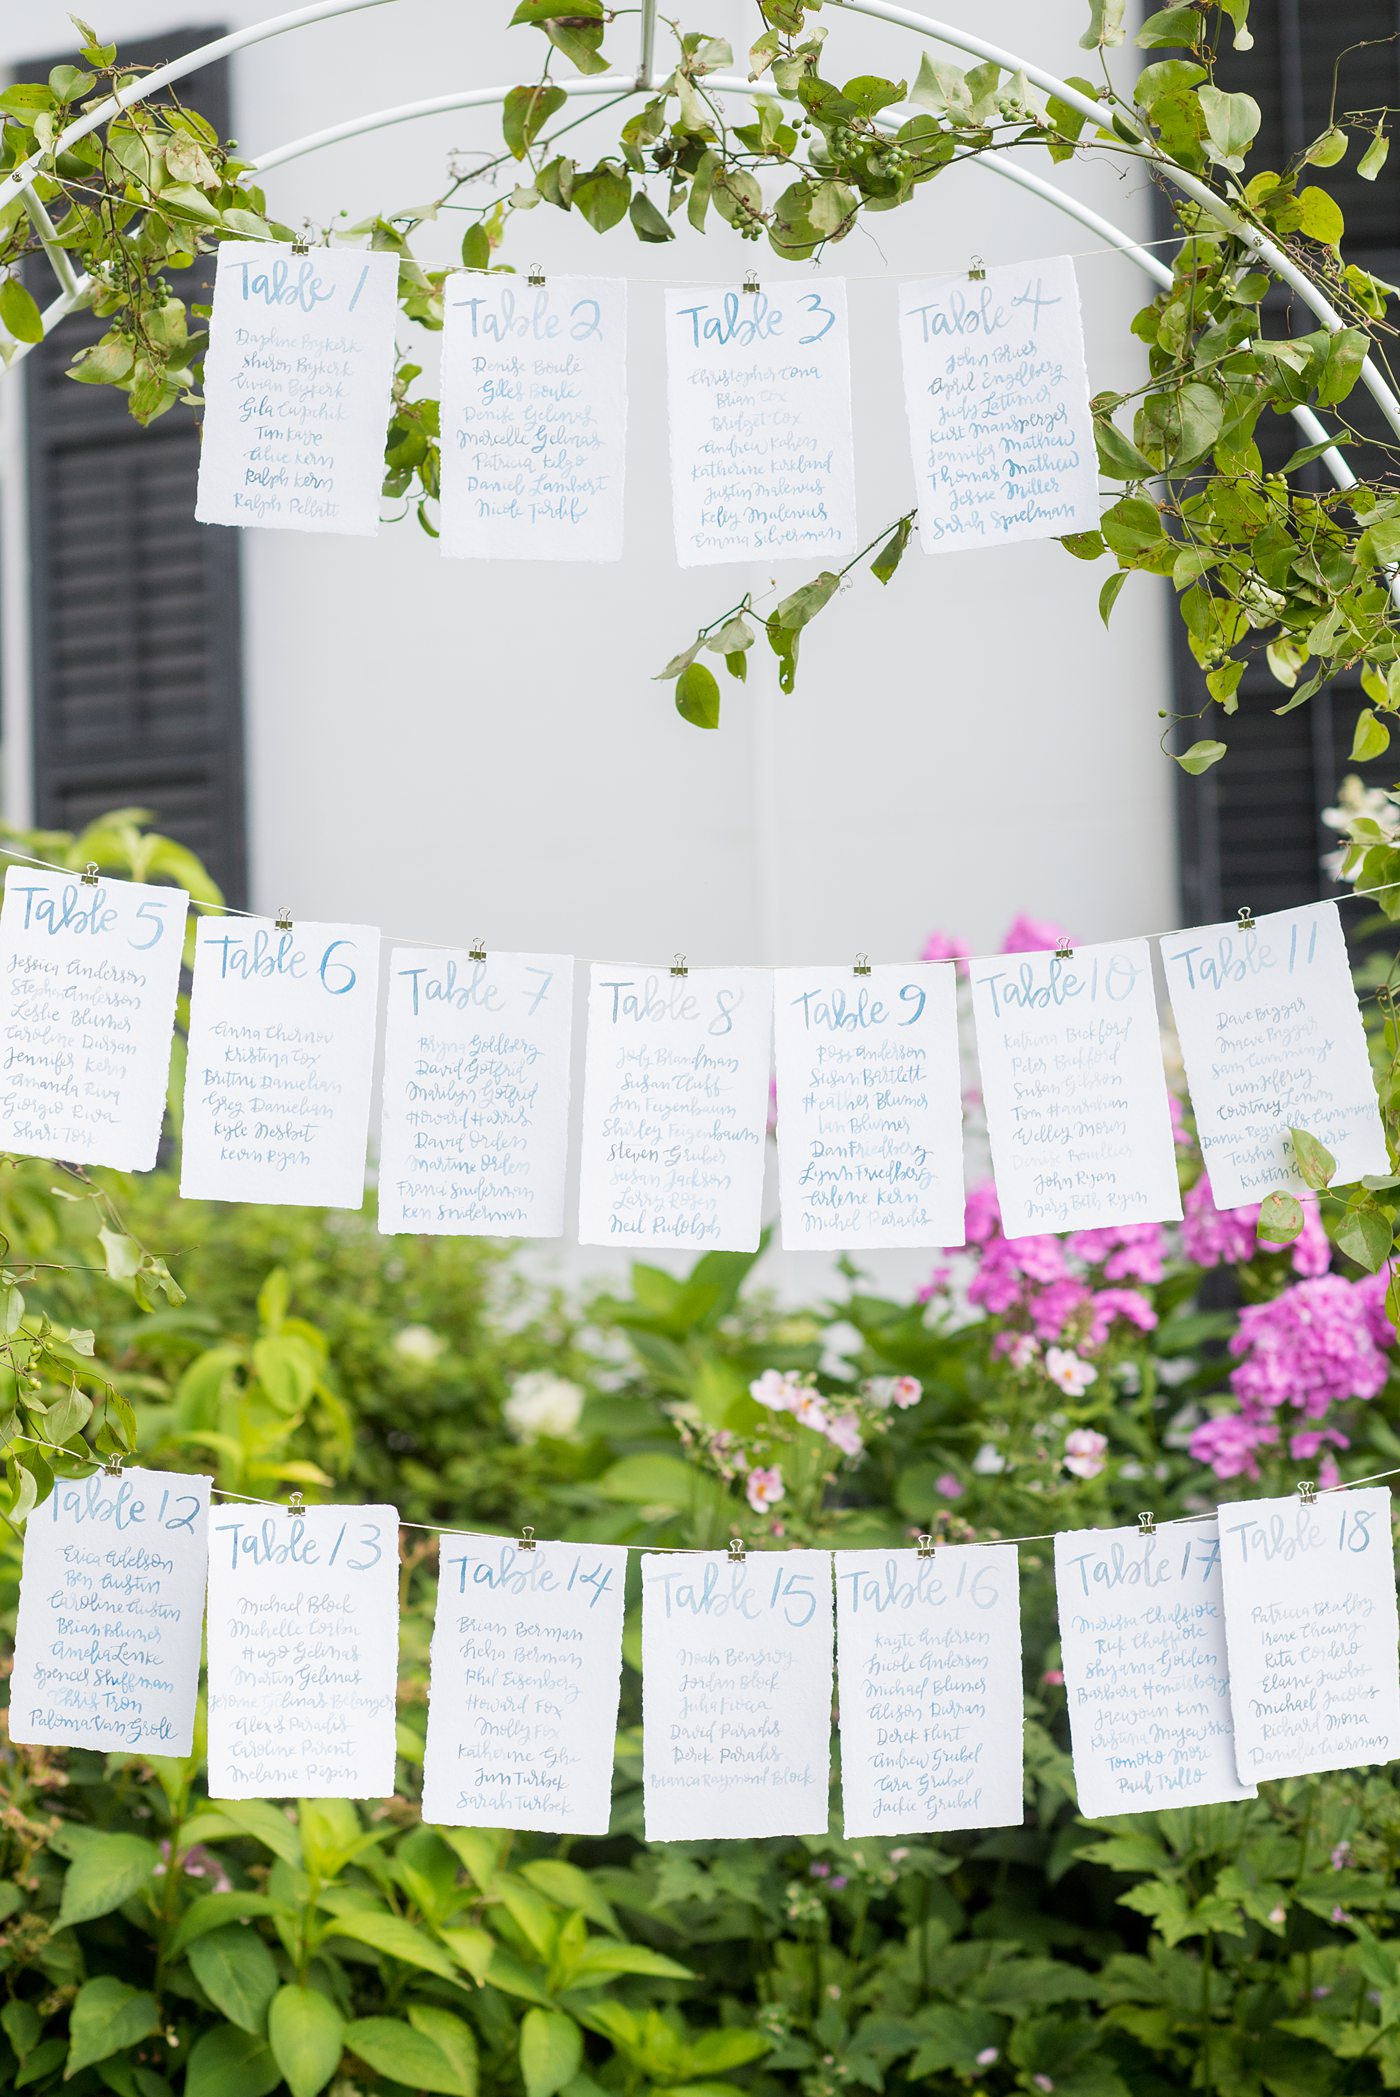 Table 1
Daphne Bykerk
Sharon Bykerk
Vivian Bykerk
Gila Cupchik
Tim Karre
Alice Kern
Ralph Kern
Ralph Pellatt
Table 2
Denise Boulé
Giles Boulé
Denise Gelinas
Marcelle Gelinas
Patricia Kilgo
Daniel Lambert
Nicole Tardif
Table 3
Christopher Cona
Brian Cox
Bridget Cox
Andrew Kahen
Katherine Kirkland
Justin Malenus
Kelly Malenus
Emma Silverman
Table 4
John Brues
April Engelberg
Judy Lattimer
Kurt Mansperger
Jennifer Mathew
Thomas Mathew
Jessie Miller
Sarah Spielman
Table 5
Jessica Anderson
Stephen Anderson
Leslie Blumer
Caroline Durran
Jennifer Kern
Amanda Riva
Giorgio Riva
Shari Tork
Table 6
Anna Chernov
Kristina Cox
Brittni Danielian
Greg Danielian
Kyle Nesbit
Kevin Ryan
Table 7
Bryna Goldberg
David Gotfrid
Marilyn Gotfrid
Howard Harris
David Orden
Martine Orden
Franci Sniderman
Ken Sniderman
Table 8
Jody Brandman
Susan Cluff
Jim Feigenbaum
Shirley Feigenbaum
Steven Gruber
Susan Jackson
Larry Rosen
Neil Rudolph
Table 9
Ross Anderson
Susan Bartlett
Heather Blumer
Ian Blumer
Dan Friedberg
Lynn Friedberg
Arlene Kern
Michel Paradis
Table 10
Katrina Bickford
Peter Bickford
Susan Gibson
Tom Hanrahan
Welley Morin
Denise Bouillier
John Ryan
Mary Beth Ryan
Table 11
Dave Biggar
Maeve Biggar
Sam Cummings
Iam Jeffrey
Courtney Lemm
Danae Reynolds Cumming
Teisha
Kristin
Table 12
Erica Adelson
Ben Austin
Caroline Austin
Brian Blumer
Amelia Lenke
Spencer Shiffman
Chris Tron
Paloma Van Groll
Table 13
Michael Block
Michelle Corbu
Hugo Gélinas
Martin Gélinas
Jerome Gélinas Bélanger
Alexis Paradis
Caroline Parent
Melanie Pépin
Table 14
Brian Berman
Lieha Berman
Phil Eisenberg
Howard Fox
Molly Fox
Katherine Ghi
Jim Turbek
Sarah Turbek
Table 15
Noah Bengwy
Jordan Block
Julia Fiocca
David Paradis
Derek Paradis
Bianca Raymond Block
Table 16
Kayte Andersen
Nicole Andersen
Michael Blumer
Alison Durran
Derek Flint
Andrew Grubel
Cara Grubel
Jackie Grubel
Table 17
Marissa Chaffiote
Rick Chaffiote
Shyama Golden
Barbara
Jaewoan Kim
Kristina Majewski
Tomoko Mori
Paul Trillo
Table 18
Patricia Bradby
Irene Cheung
Rita Cordero
Elaine Jacobs
Michael Jacobs
Richard Mona
Danielle Warman